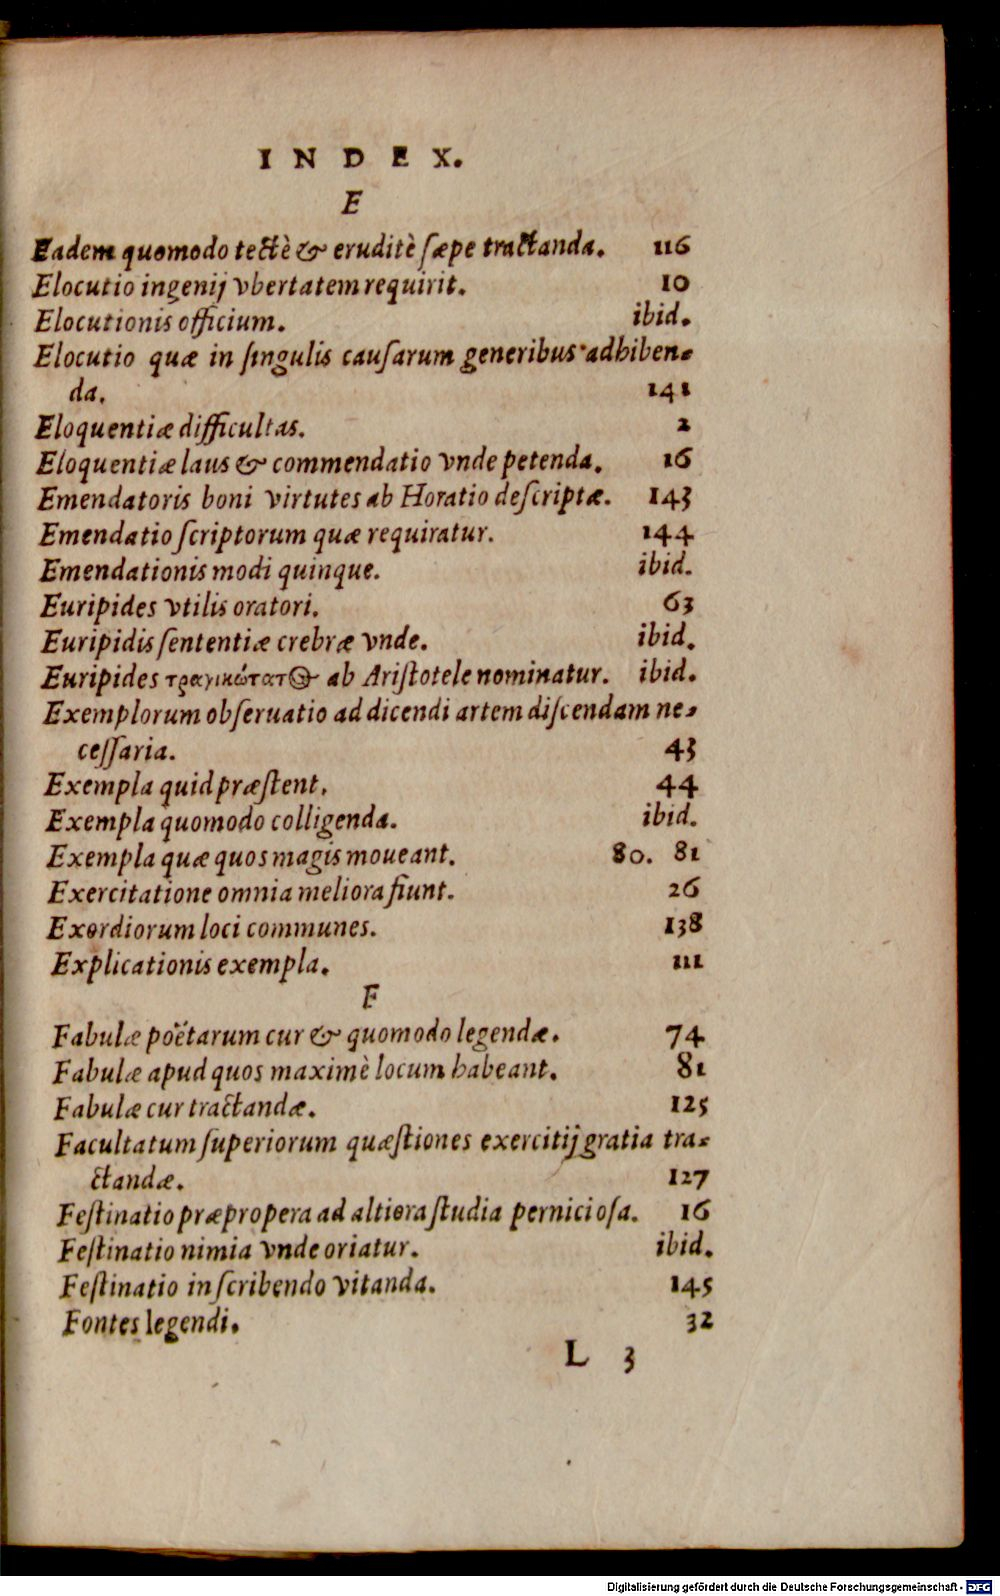 INDEX.
E
Eadem quomodo tectè & eruditè ſæpe tractanda. 116
Elocutio ingenij vbertatem requirit. 10
Elocutionis officium. ibid.
Elocutio quæ in ſingulis cauſarum generibus adhiben-
da. 141
Eloquentiæ difficultas. 2
Eloquentiæ laus & commendatio vnde petenda. 16
Emendatoris boni virtutes ab Horatio deſcriptæ. 143
Emendatio ſcriptorum quæ requiratur. 144
Emendationis modi quinque. ibid.
Euripides vtilis oratori. 63
Euripidis ſententiæ crebræ vnde. ibid.
Euripides τραγικώτατος ab Ariſtotele nominatur. ibid.
Exemplorum obſeruatio ad dicendi artem diſcendam ne-
ceſſaria. 43
Exempla quid præſtent. 44
Exempla quomodo colligenda. ibid.
Exempla quæ quos magis moueant. 80. 81
Exercitatione omnia meliora fiunt. 26
Exordiorum loci communes. 138
Explicationis exempla. 111
F
Fabulæ poëtarum cur & quomodo legendæ. 74
Fabulæ apud quos maximè locum habeant. 81
Fabulæ cur tractandæ. 125
Facultatum ſuperiorum quæſtiones exercitij gratia tra-
ctandæ. 127
Feſtinatio præpropera ad altiora ſtudia pernicioſa. 16
Feſtinatio nimia vnde oriatur. ibid.
Feſtinatio in ſcribendo vitanda. 145
Fontes legendi. 32
L 3
Digitalisierung gefördert durch die Deutsche Forschungsgemeinschaft - DFG